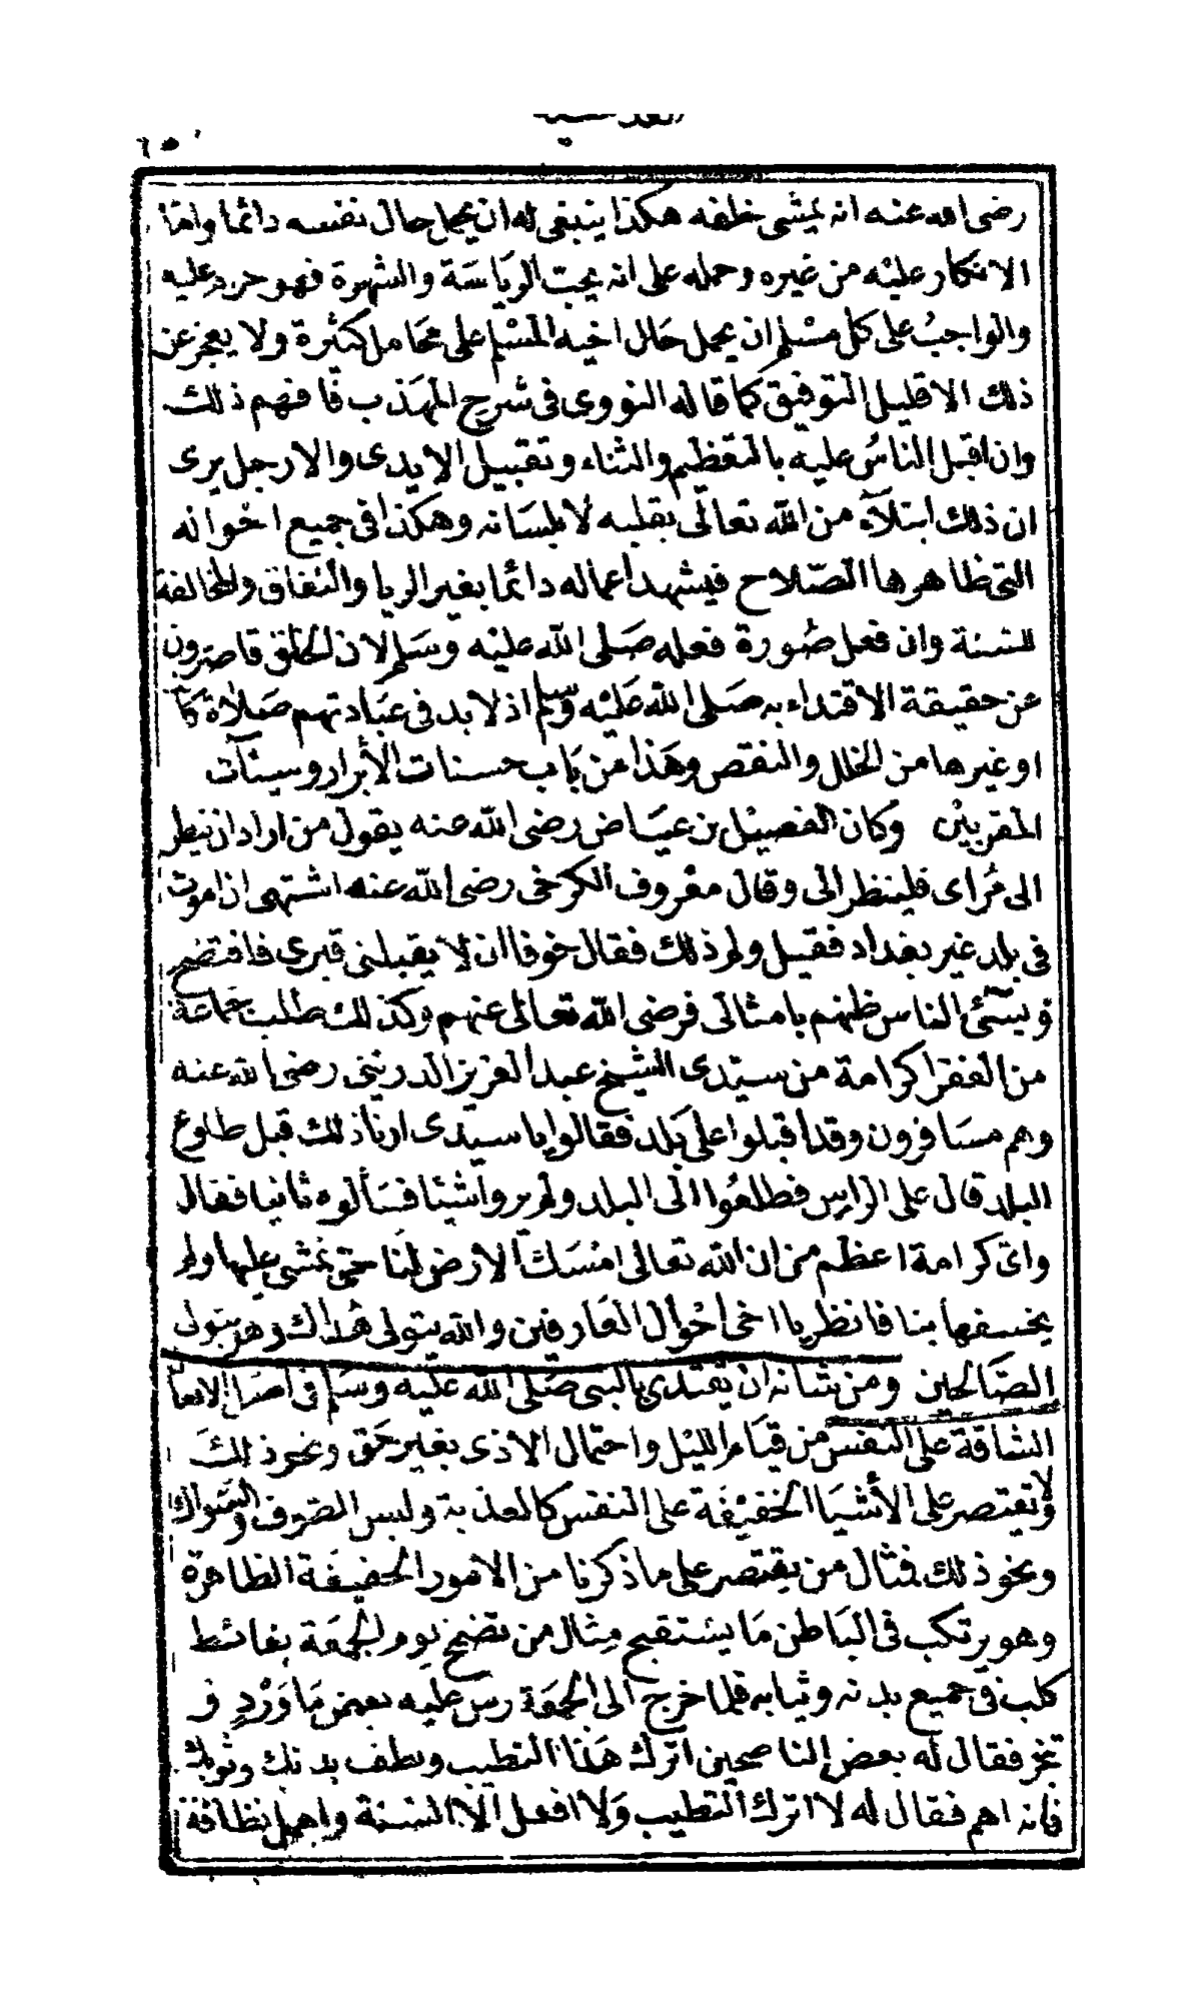 رضى الله عنه انه يمشى خلفه هكذا ينبغى له ان يحمل حال نفسه دائما واما
الانكار عليه من غيره وحمله على انه يحب الرياسة والشهرة فهو حرام عليه
والواجب على كل مسلم ان يحمل حال اخيه المسلم على محامل كثيرة ولا يعجز عن
ذلك الا قليل التوفيق كما قاله النووى فى شرح المهذب فافهم ذلك
وان اقبل الناس عليه بالتعظيم والثناء وتقبيل الايدى والارجل يرى
ان ذلك ابتلاء من الله تعالى بقلبه لا بلسانه وهكذا فى جميع احواله
التى ظاهرها الصلاح فيشهد اعماله دائما بغير الريا والنفاق والمخالفة
للسنة وان فعل صورة فعله صلى الله عليه وسلم لان الخلق قاصرون
عن حقيقة الاقتداء به صلى الله عليه وسلم اذ لا بد فى عبادتهم صلاة كا
او غيرها من الخلل والنقص وهذا من باب حسنات الأبرار وسيئات
المقربين وكان الفضيل بن عياض رضى الله عنه يقول من اراد ان ينظر
الى مراى فلينظر الى وقال معروف الكرخى رضى الله عنه اشتهى ان اموت
فى بلد غير بغداد فقيل ولم ذلك فقال خوفا ان لا يقبلنى قبرى فافتضح
ويسئ الناس ظنهم بامثالى فرضى الله تعالى عنهم وكذلك طلب جماعة
من الفقرا كرامة من سيدى الشيخ عبد العزيز الدرينى رضى الله عنه
وهم مسافرون وقد اقبلوا على بلد فقالوا يا سيدى ارنا ذلك قبل طلوع
البلد قال على الراس فطلعوا الى البلد ولم يروا شيئا فسألوه ثانيا فقال
واى كرامة اعظم من ان الله تعالى امسك الارض لنا حتى نمشى عليها ولم
يخسفها بنا فانظر يا اخى احوال العارفين والله يتولى هداك وهو يتولى
الصالحين ومن شانه ان يقتدى بالنبى صلى الله عليه وسلم فى
الشاقة على النفس من قيام الليل واحتمال الاذى بغير حق ونحو ذلك
ولا يقتصر على الأشيا الخفيفة على النفس كالعذبة ولبس الصوف والسواك
ونحو ذلك فمثال من يقتصر على ما ذكرنا من الامور الخفيفة الظاهرة
وهو يرتكب فى الباطن ما يستقبح مثال من تضمخ يوم الجمعة بغائط
كلب فى جميع بدنه وثيابه فلما خرج الى الجمعة رش عليه بعض ما ورد و
تبخر فقال له بعض الناصحين اترك هذا التطيب ونظف بدنك وثوبك
فانه اهم فقال له لا اترك التطيب ولا افعل الا السنة واهمل نظافة